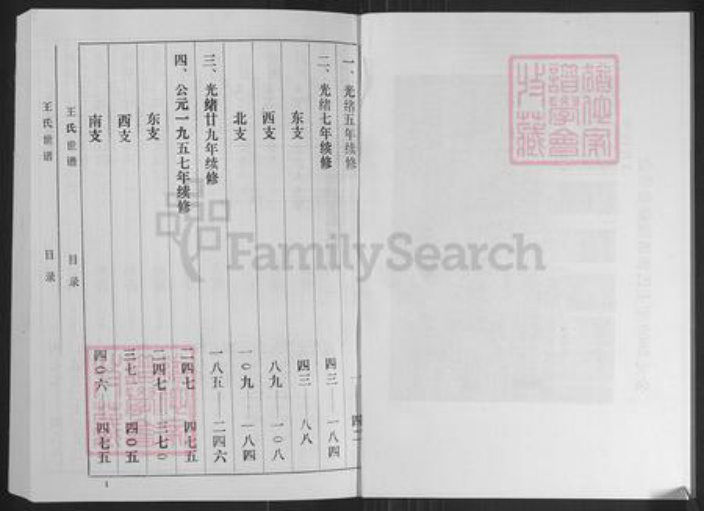 一、光绪五年续修 一 四二
二、光绪七年续修 四三——一八四
东支 四三——八八
西支 八九——一〇八
北支 一〇九——一八四
三、光绪廿九年续修 一八五——二四六
四、公元一九五七年续修 二四七——四七五
东支 二四七——三七〇
西支 三七一——四〇五
南支 四〇六——四七五
王氏世谱 目录
王氏世谱 目录
1
FamilySearch